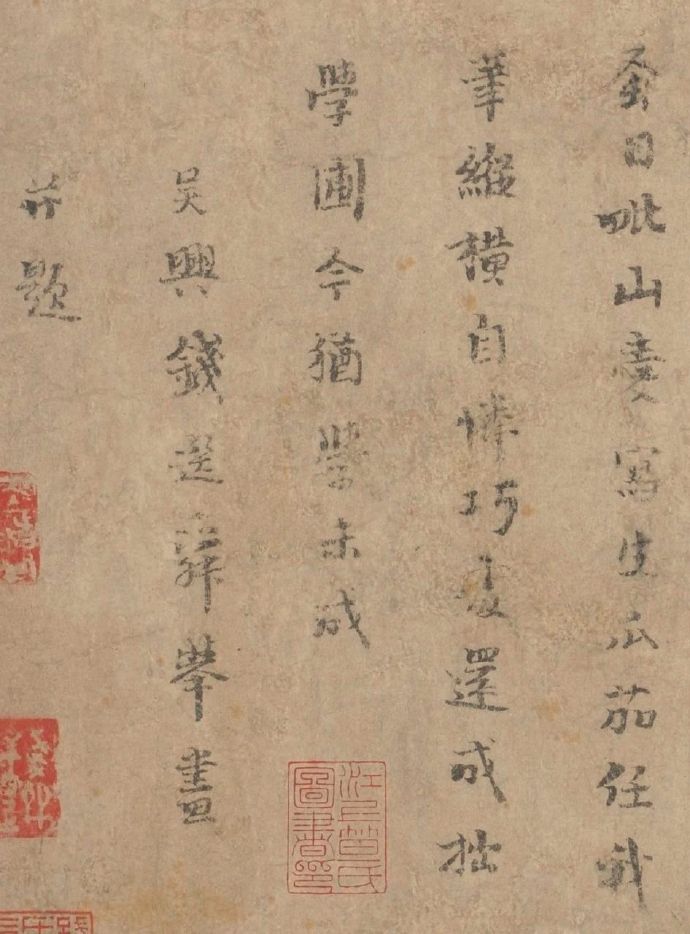 日毗山愛寫生瓜茄任我
筆縱橫自憐巧處還成拙
學圃今猶學未成
吳興錢選舜舉畫
并題